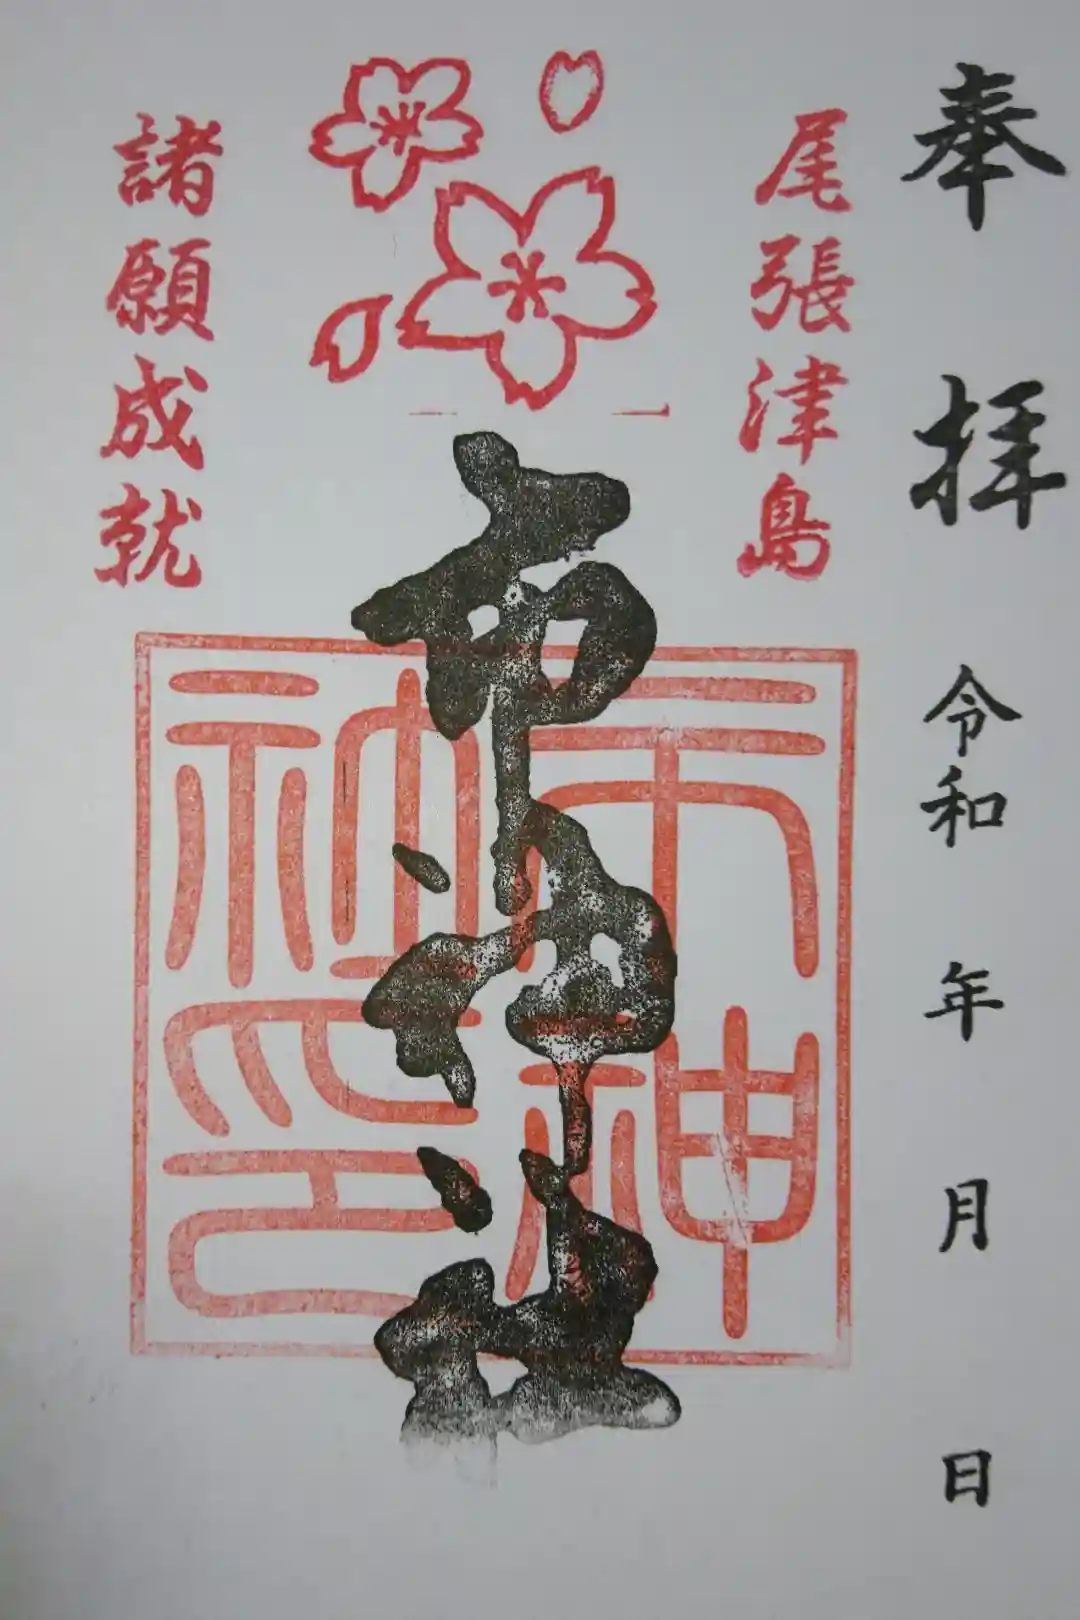 奉拝 令和 年 月 日
尾張津島
市神社
市神神印
諸願成就